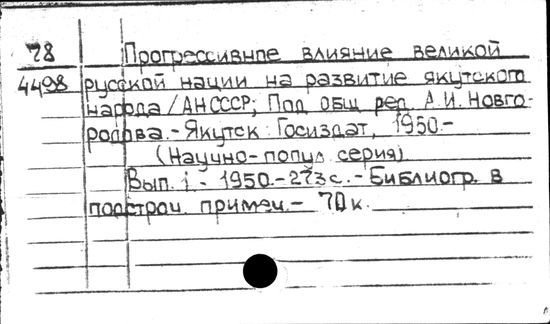 78 Прогрессивное влияние великой
4498 русской нации на развитие якутского
народа/АН СССР; Под общ. ред. А.И. Новго-
родова.- Якутск: Госиздат, 1950.-
(Научно-попул. серия)
Вып. 1. - 1950.- 273 с. - Библиогр. в
подстроч. примеч.- 70 к.